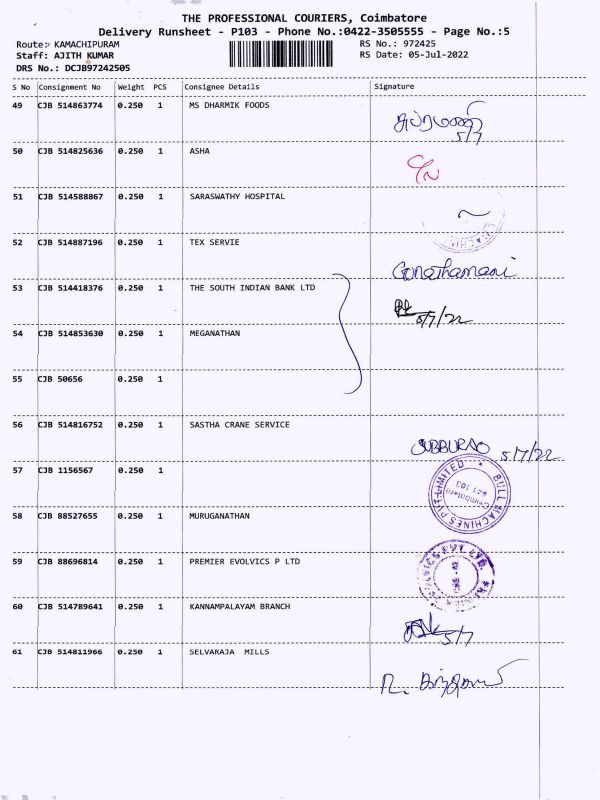 THE PROFESSIONAL COURIERS, Coimbatore
Delivery Runsheet - P103 - Phone No.:0422-3505555 - Page No.:5
Route: KAMACHIPURAM RS No.: 972425
Staff: AJITH KUMAR RS Date: 05-Jul-2022
DRS No.: DCJB97242505
S No Consignment No Weight PCS Consignee Details Signature
49 CJB 514863774 0.250 1 MS DHARMIK FOODS
5/7
50 CJB 514825636 0.250 1 ASHA
51 CJB 514588867 0.250 1 SARASWATHY HOSPITAL
52 CJB 514887196 0.250 1 TEX SERVIE
53 CJB 514418376 0.250 1 THE SOUTH INDIAN BANK LTD
5/7/22
54 CJB 514853630 0.250 1 MEGANATHAN
55 CJB 50656 0.250 1
56 CJB 514816752 0.250 1 SASTHA CRANE SERVICE
SUBBURAO 5/7/22
57 CJB 1156567 0.250 1
BULL MACHINES PVT LIMITED
Coimbatore
641 103
58 CJB 88527655 0.250 1 MURUGANATHAN
59 CJB 88696814 0.250 1 PREMIER EVOLVICS P LTD
60 CJB 514789641 0.250 1 KANNAMPALAYAM BRANCH
5/7
61 CJB 514811966 0.250 1 SELVARAJA MILLS